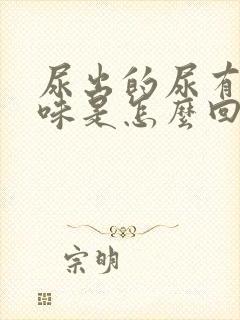 尿出的尿有
味是怎麼回
宗明